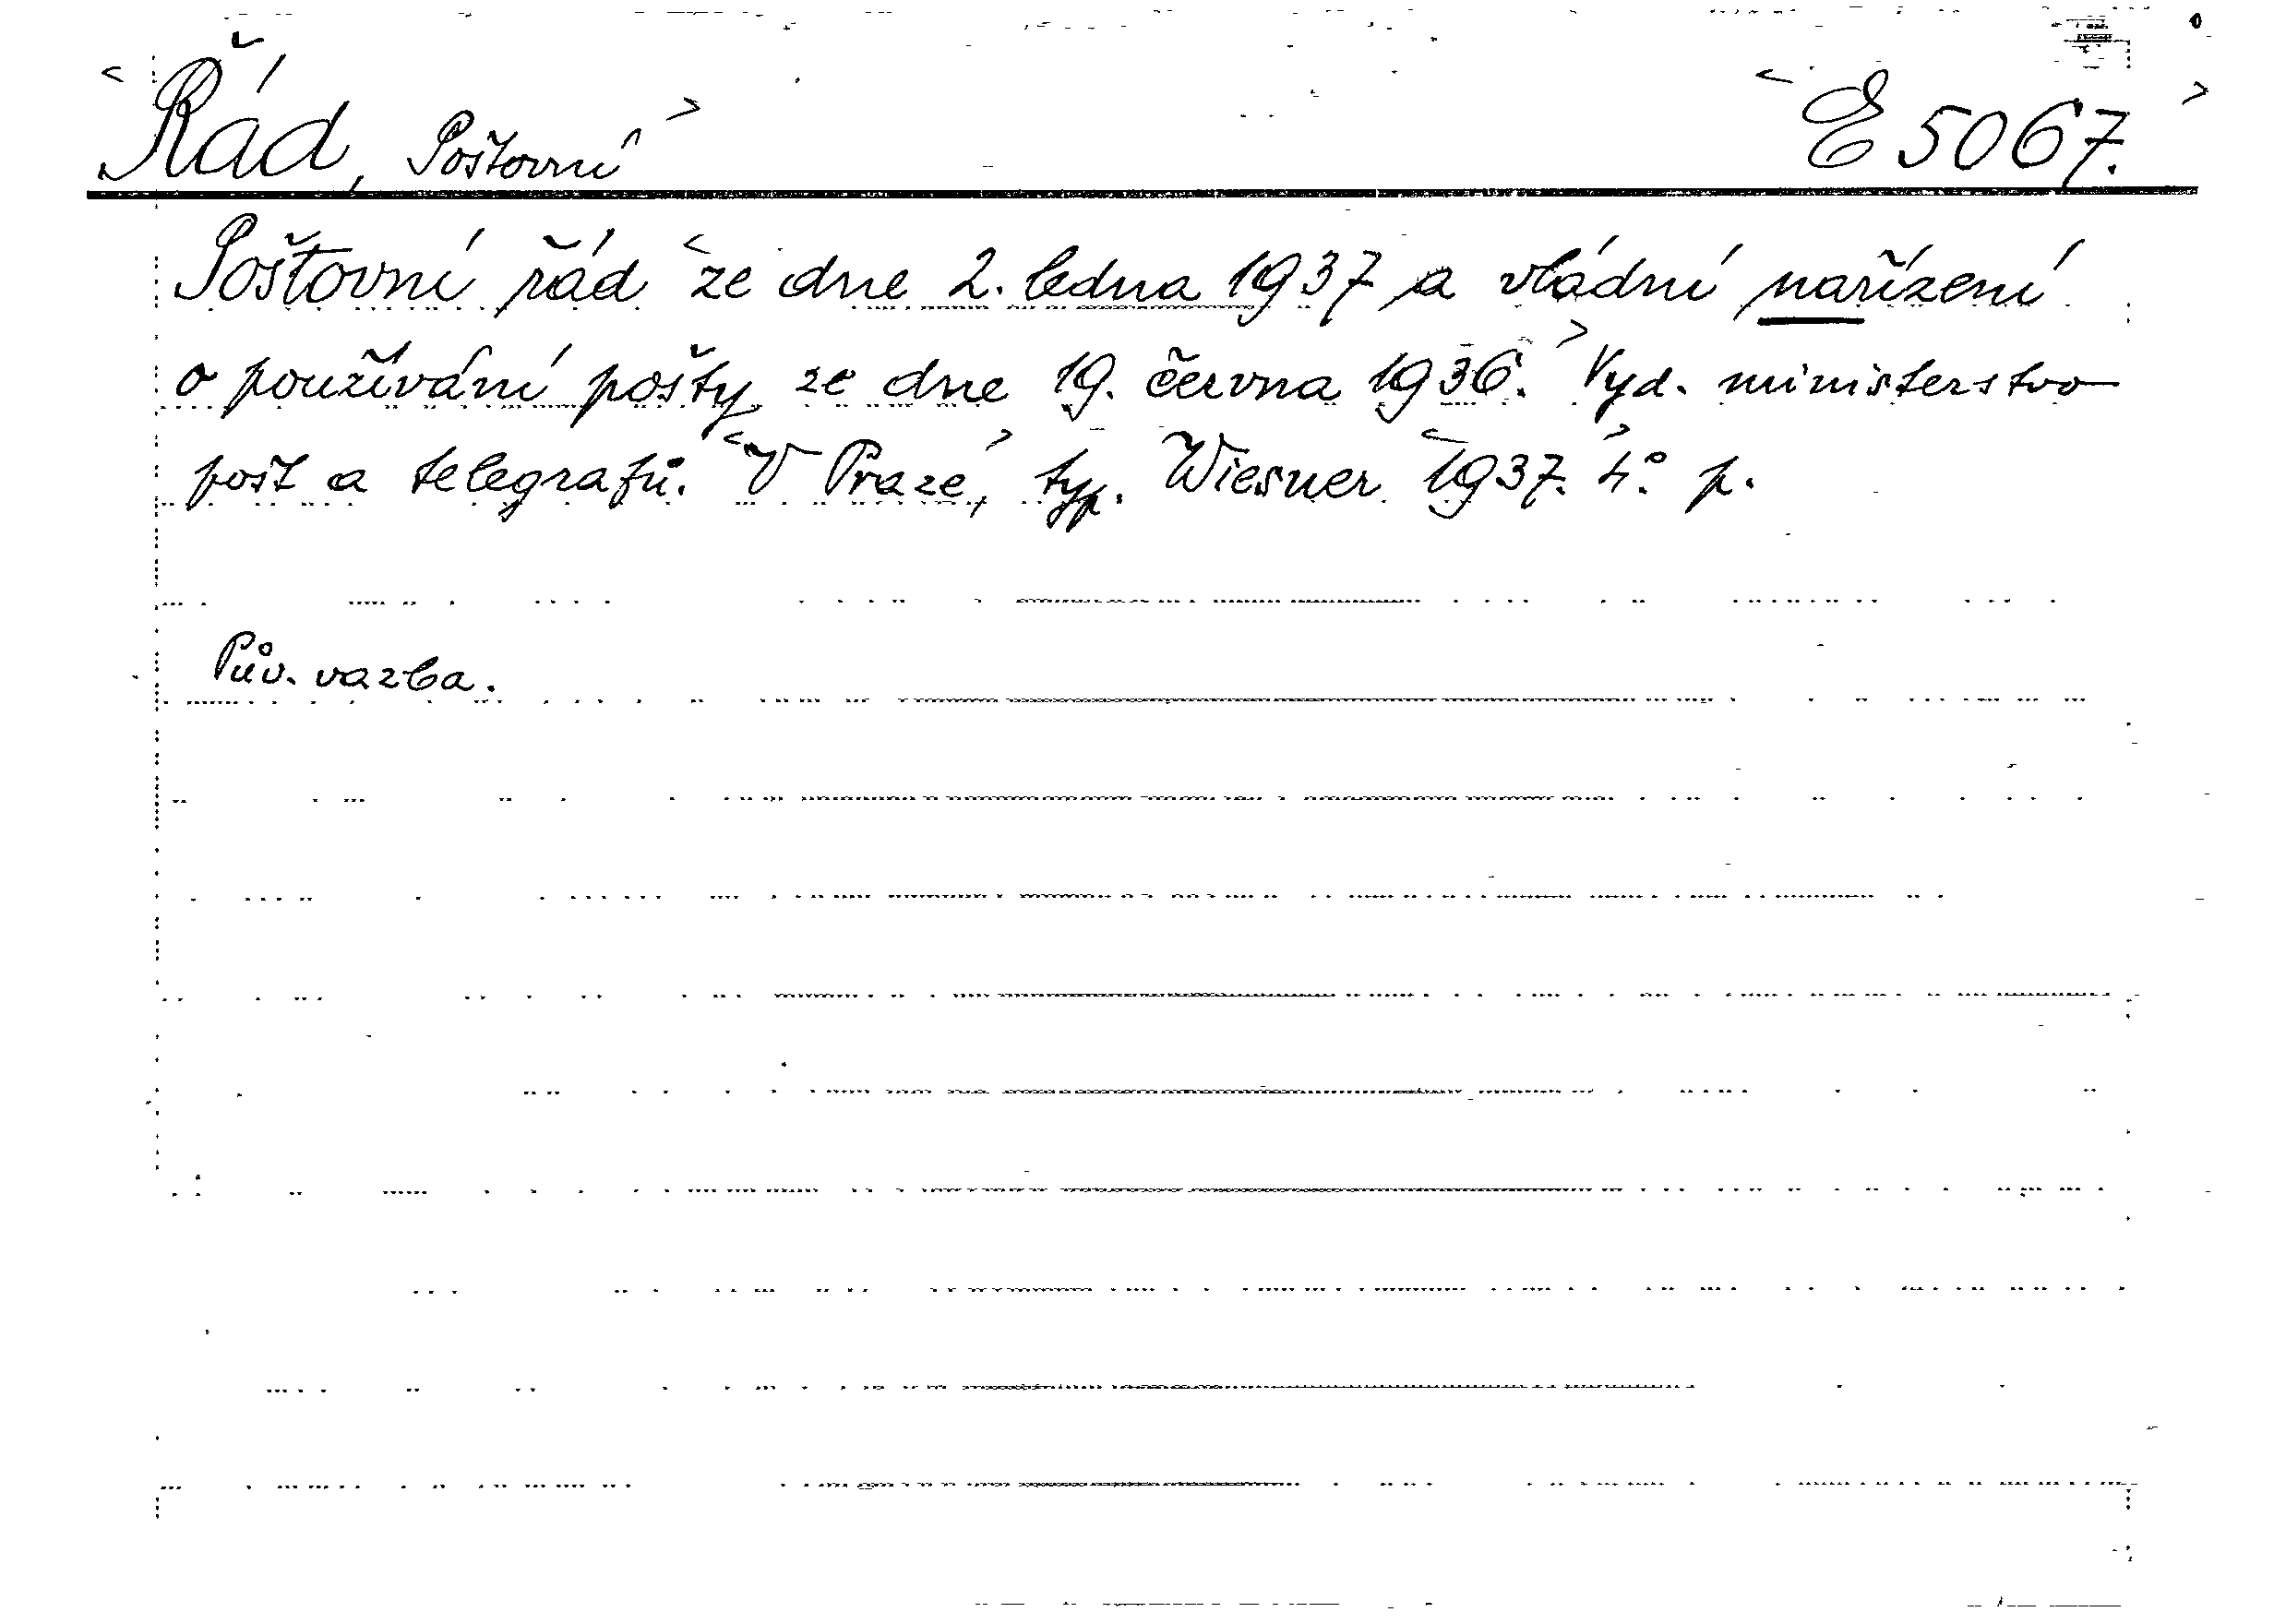 <Řád, Poštovní> <E 5067.>
Poštovní řád <ze dne 2. ledna 1937 a vládní nařízení
o používání pošty ze dne 19. června 1936.> Vyd. ministerstvo
pošt a telegrafů. <V Praze,> typ. Wiesner <1937.> 4° p.
Pův. vazba.